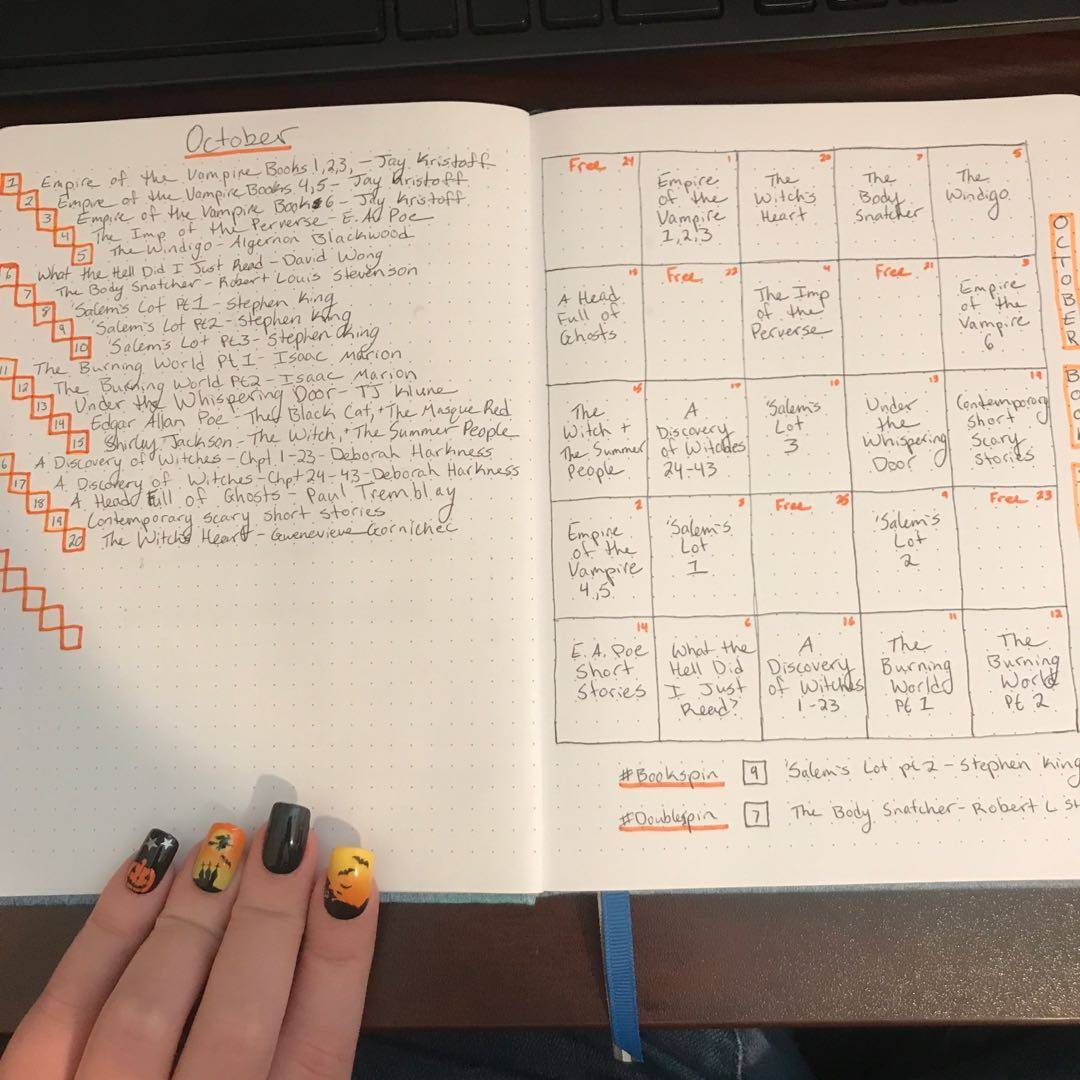 October
1 Empire of the Vampire Books 1,2,3, - Jay Kristoff
2 Empire of the Vampire Books 4,5 - Jay Kristoff
3 Empire of the Vampire Book 6 - Jay Kristoff
4 The Imp of the Perverse - E.A. Poe
5 The Windigo - Algernon Blackwood
6 What the Hell Did I Just Read - David Wong
7 The Body Snatcher - Robert Louis Stevenson
8 'Salem's Lot Pt1 - Stephen King
9 'Salem's Lot Pt2 - Stephen King
10 'Salem's Lot Pt3 - Stephen King
11 The Burning World Pt 1 - Isaac Marion
12 The Burning World Pt2 - Isaac Marion
13 Under the Whispering Door - TJ Klune
14 Edgar Allan Poe - The Black Cat, + The Masque Red
15 Shirley Jackson - The Witch, + The Summer People
6 A Discovery of Witches - Chpt 1-23 - Deborah Harkness
17 A Discovery of Witches - Chpt 24-43 - Deborah Harkness
18 A Head Full of Ghosts - Paul Tremblay
19 Contemporary scary short stories
20 The Witch's Heart - Guenevieve Gornichec
Free 24
1
Empire
of the
Vampire
1,2,3
20
The
Witch's
Heart
7
The
Body
Snatcher
5
The
Windigo
18
A Head
Full of
Ghosts
Free 22
4
The Imp
of the
Perverse
Free 21
3
Empire
of the
Vampire
6
15
The
Witch +
The Summer
People
17
A
Discovery
of Witches
24-43
10
'Salem's
Lot
3
13
Under
the
Whispering
Door
19
Contemporary
Short
Scary
Stories
2
Empire
of the
Vampire
4,5
'Salem's
Lot
1
Free 25
9
'Salem's
Lot
2
Free 23
14
E. A. Poe
Short
Stories
6
What the
Hell Did
I Just
Read?
16
A
Discovery
of Witches
1-23
11
The
Burning
World
Pt 1
12
The
Burning
World
Pt 2
OCTOBER
#Bookspin 9 'Salem's Lot pt2 - Stephen King
#Doublespin 7 The Body Snatcher - Robert L St